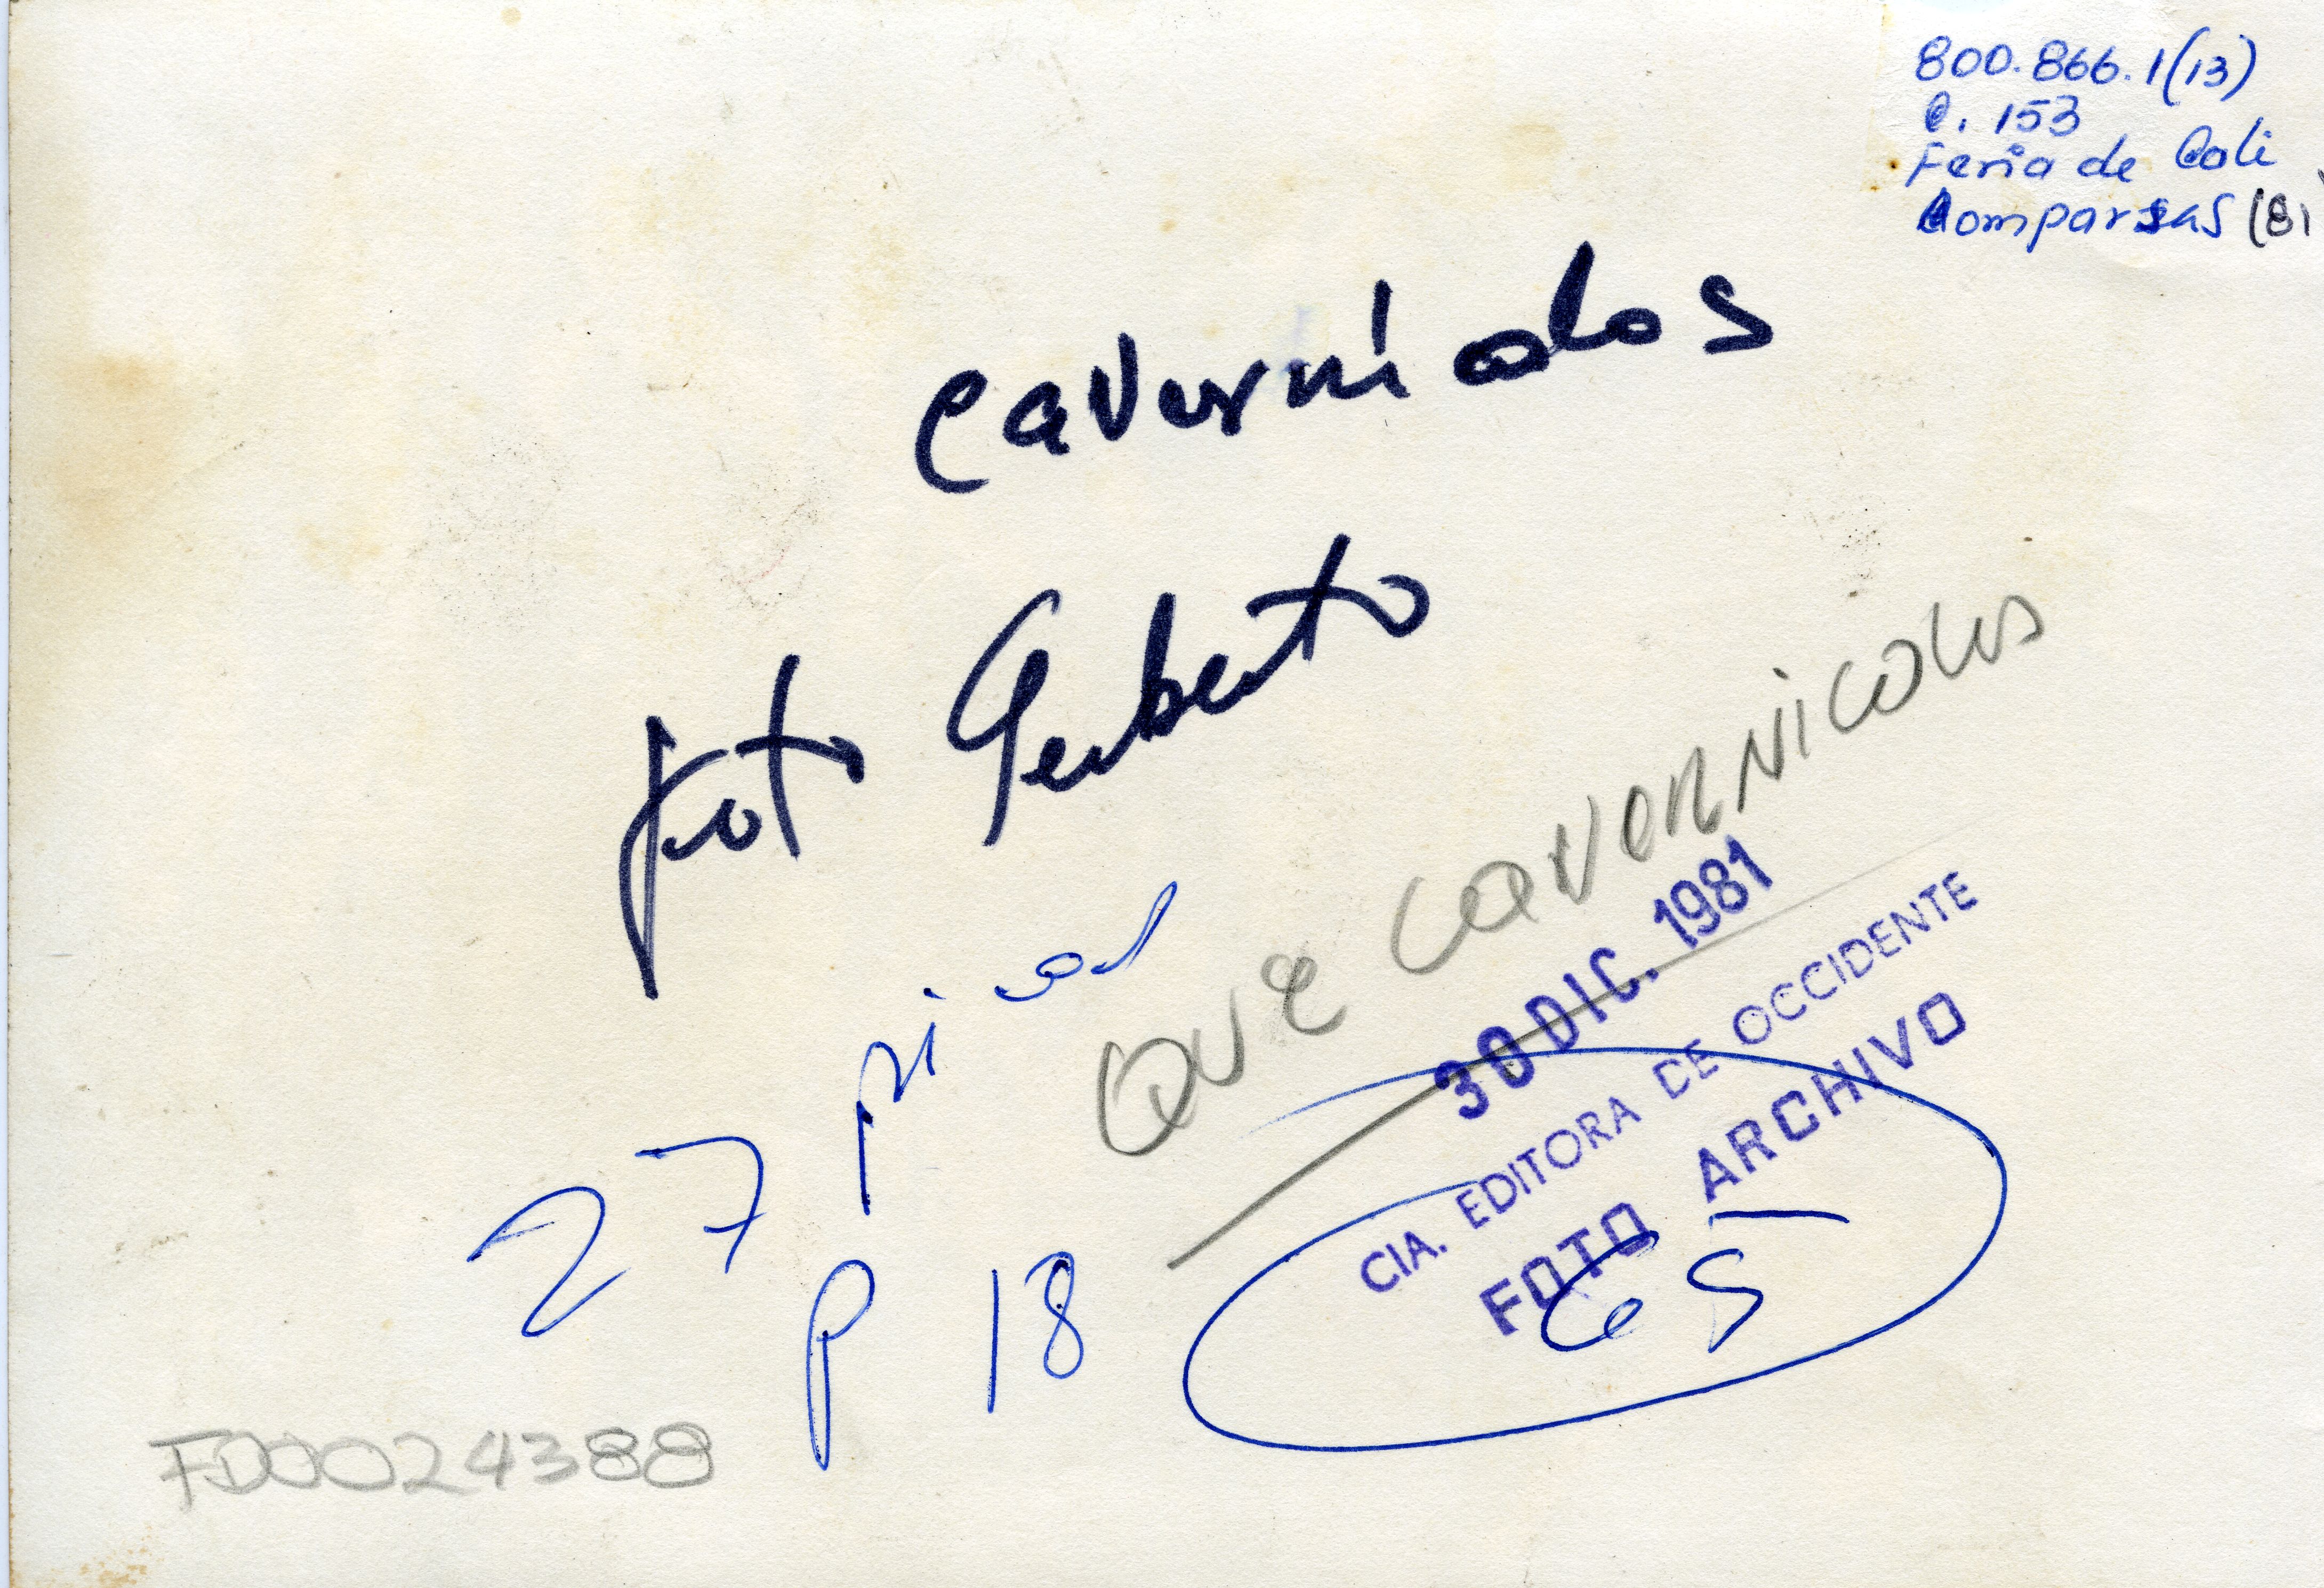 800.866.1(13)
C. 153
Feria de Cali
Comparsas (81
Cavernícolas
foto Gerberto
QUE CAVERNICOLAS
30 DIC. 1981
CIA. EDITORA DE OCCIDENTE
FOTO ARCHIVO
27
P 18
65
FD0024388